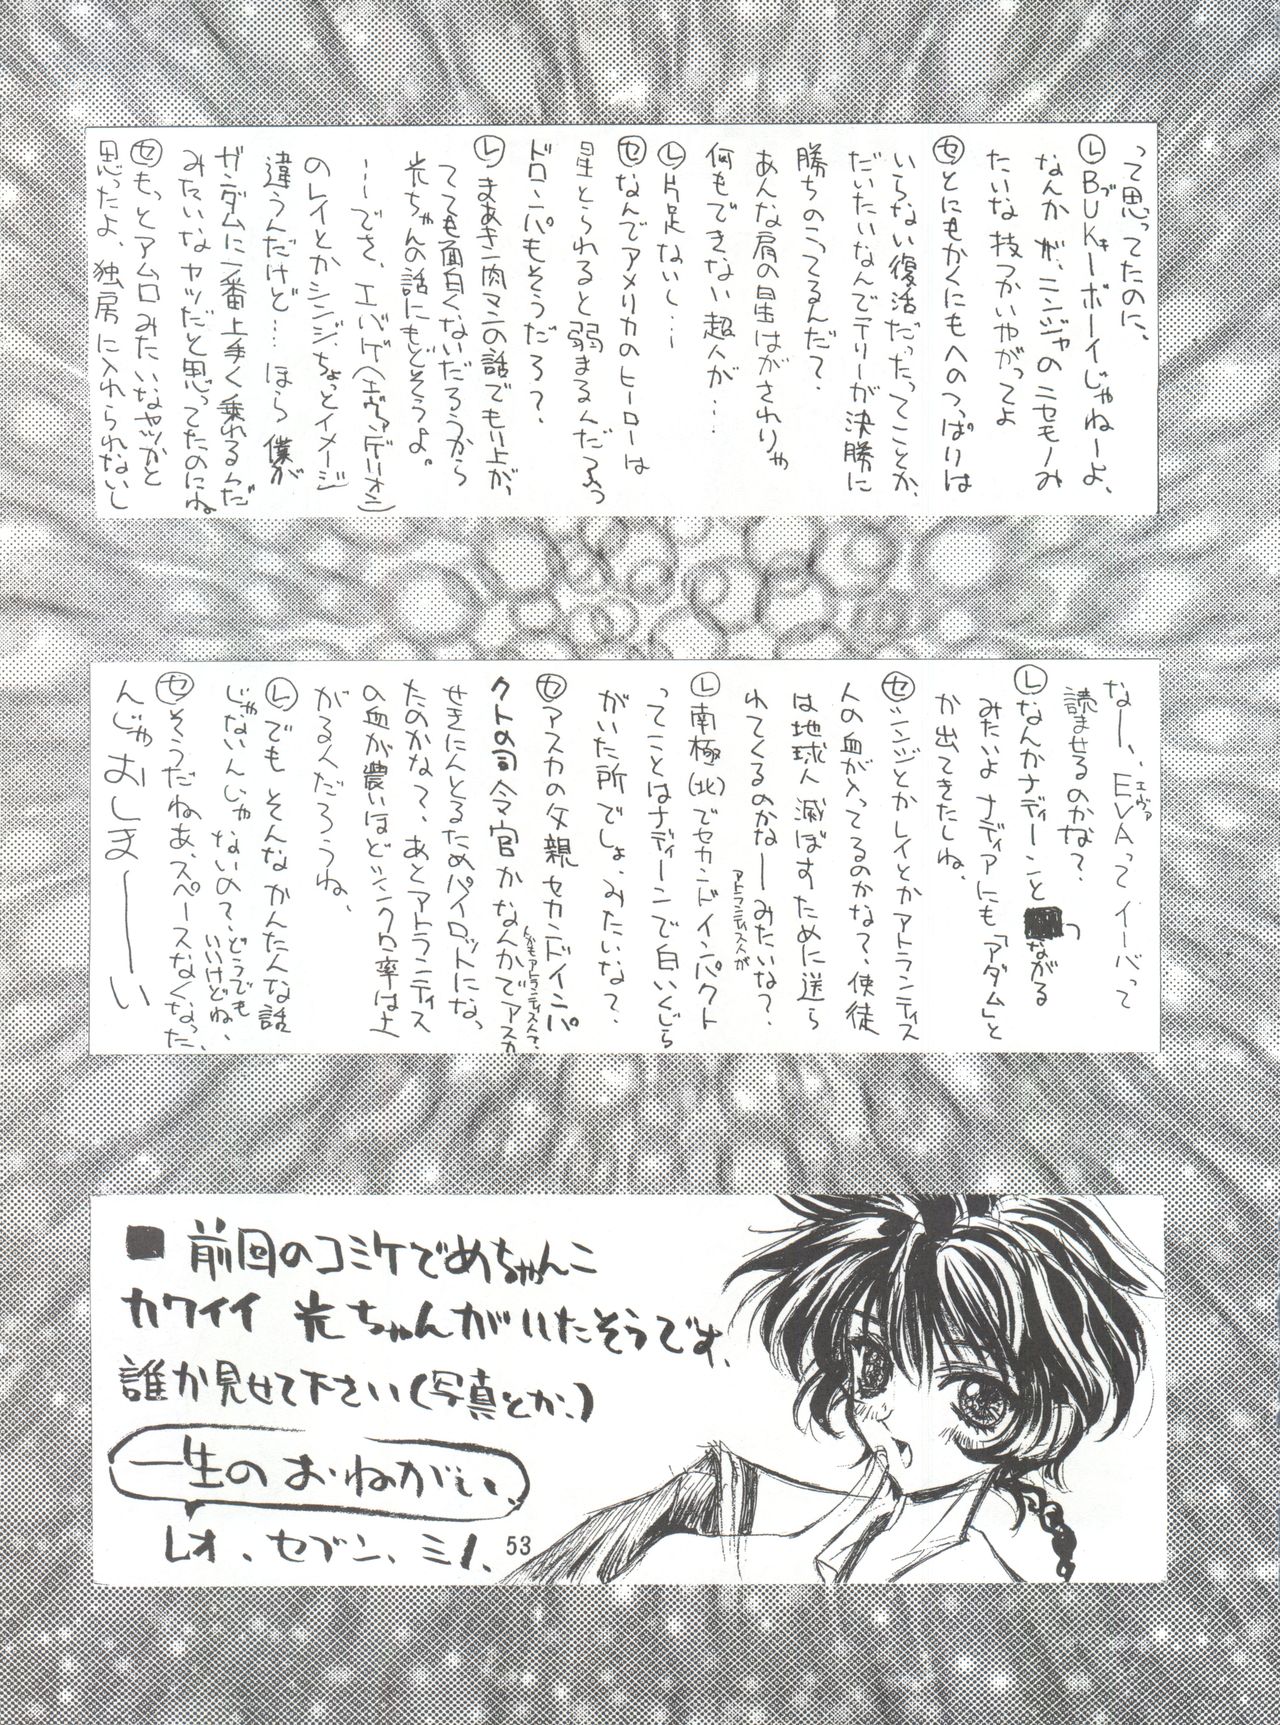 って思ってたのに、
㋹BUKキーボーイじゃねーよ、
なんかが、ニンジャのニセモノみ
たいな技つかいやがってよ
㋝とにもかくにもへのつっぱりは
いらない復活だったってことか、
だいたいなんでテリーが決勝に
勝ちのこってるんだ?
あんな肩の星はがされりゃ
何もできない超人が…
㋹片足ないし…
㋝なんでアメリカのヒーローは
星とられると弱まるんだろっ
ドロンパもそうだろ?
㋹まあキン肉マンの話でもり上が、
てても面白くないだろうから
光ちゃんの話にもどそうよ。
…でさ、エバゲ(エヴァンゲリオン)
のレイとかシンジ、ちょっとイメージ
違うんだけど…ほら僕が
ガンダムに一番上手く乗れるんだ
みたいなヤツだと思ってたのにね
㋝もっとアムロみたいなヤツかと
思ったよ、独房に入れられないし
なー、EVAエヴァってイーバって
読ませるのかな?
㋹なんかナディーンとつながる
みたいよナディアにも「アダム」と
か出てきたしね、
㋝シンジとかレイとかアトランティス
人の血が入ってるのかな?、使徒
は地球人滅ぼすために送ら
れてくるのかなーみたいな?
アトランティス人が
㋹南極(北)でセカンドインパクト
ってことはナディーンで白いくじら
がいた所でしょ、みたいな?
㋝アスカの父親セカンドインパ
クトの司令官かなんかでアスカ
んでもアトランティス人で?
せきにんとるためパイロットにな、
たのかな?、あとアトランティス
の血が濃いほどシンクロ率は上
がる人だろうね、
㋹でもそんなかんたんな話
じゃないんじゃないの?、どうでも
いいけどね、
㋝そうだねあ、スペースなくなった、
んじゃおしまーーい
■前回のコミケでめちゃんこ
カワイイ光ちゃんがいたそうです、
誰か見せて下さい(写真とか、)
一生のおねがい、
レオ、セブン、ミノ、
53